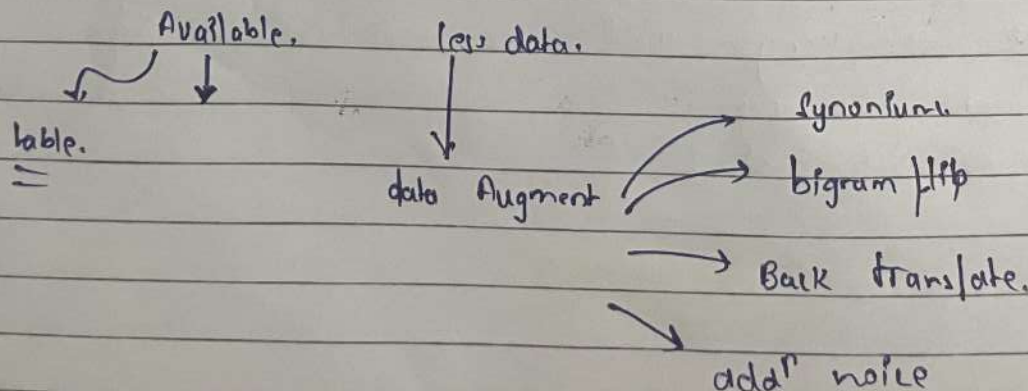 Available.
less data.
table.
data Augment
Synonium.
bigram flip
Back translate.
addn noice